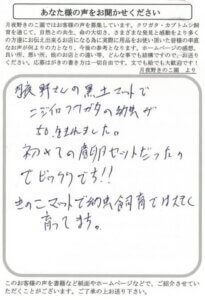 あなた様の声をお聞かせください
月夜野きのこ園ではお客様の声を募集しています。クワガタ・カブトムシ飼
育を通じて、自然との共生、命の大切さ、さまざまな発見と感動をより多く
の方達にお伝え出来る用になる為に実際に用品をお使い頂いた皆様の率直
なお声が何よりの力となり、今後の参考となります。ホームページの感想、
良い所、悪い所、他のお店との違い等、どんな事も結構ですので、お送り下
さい。応募の際の書き方は一切自由です。文でも絵でも大歓迎です!
月夜野きのこ園 より
月夜野さんの黒土マットで
ニジイロクワガタの幼虫が
50頭生れました。
初めての産卵セットだったの
でビックリです!!
きのこマットで幼虫飼育では大きく
育ってます。
このお客様の声を書籍など紙面やホームページなどで、ご紹介させてい
ただくことがございます。ご了承の上お送り下さい。